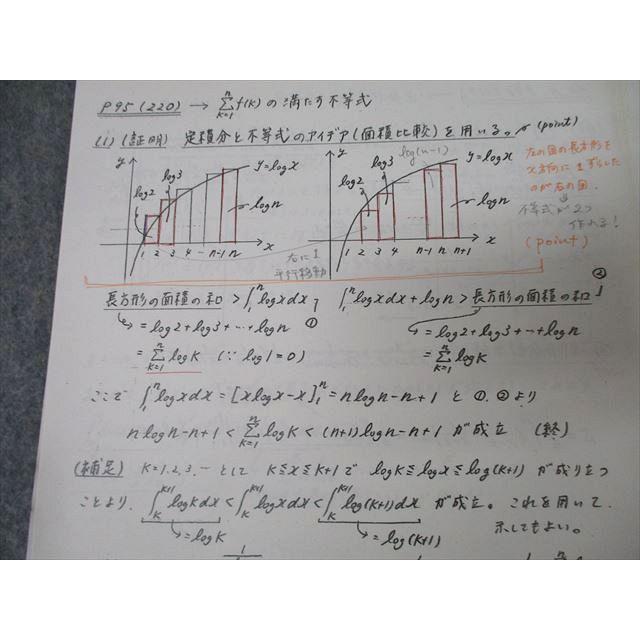 P95 (220) → Σ[k=1→n] f(k) の満たす不等式
(i) (証明) 定積分と不等式のアイデア(面積比較)を用いる。 (point)
y log2 log3 y=logx logn
1 2 3 4 n-1 n x
y log2 log3 log(n-1) y=logx logn
1 2 3 4 n-1 n n+1 x
左の図の長方形を
x方向に1ずらした
のが右の図。
不等式が2つ
作れる!
(point)
右に1
平行移動
長方形の面積の和 > ∫₁ⁿ logxdx, ①
∫₁ⁿ logxdx + logn > 長方形の面積の和 ②
= log2+log3+…+logn
= Σ[k=1→n] logk (∵ log1=0)
= log2+log3+…+logn
= Σ[k=1→n] logk
ここで ∫₁ⁿ logxdx = [xlogx-x]₁ⁿ = nlogn-n+1 と ①, ② より
nlogn-n+1 < Σ[k=1→n] logk < (n+1)logn-n+1 が成立 (終)
(補足) k=1,2,3,… として k≦x≦k+1 で logk≦logx≦log(k+1) が成り立つ
ことより, ∫[k→k+1] logkdx < ∫[k→k+1] logxdx < ∫[k→k+1] log(k+1)dx が成立。これを用いて,
示してもよい。
= logk = log(k+1)